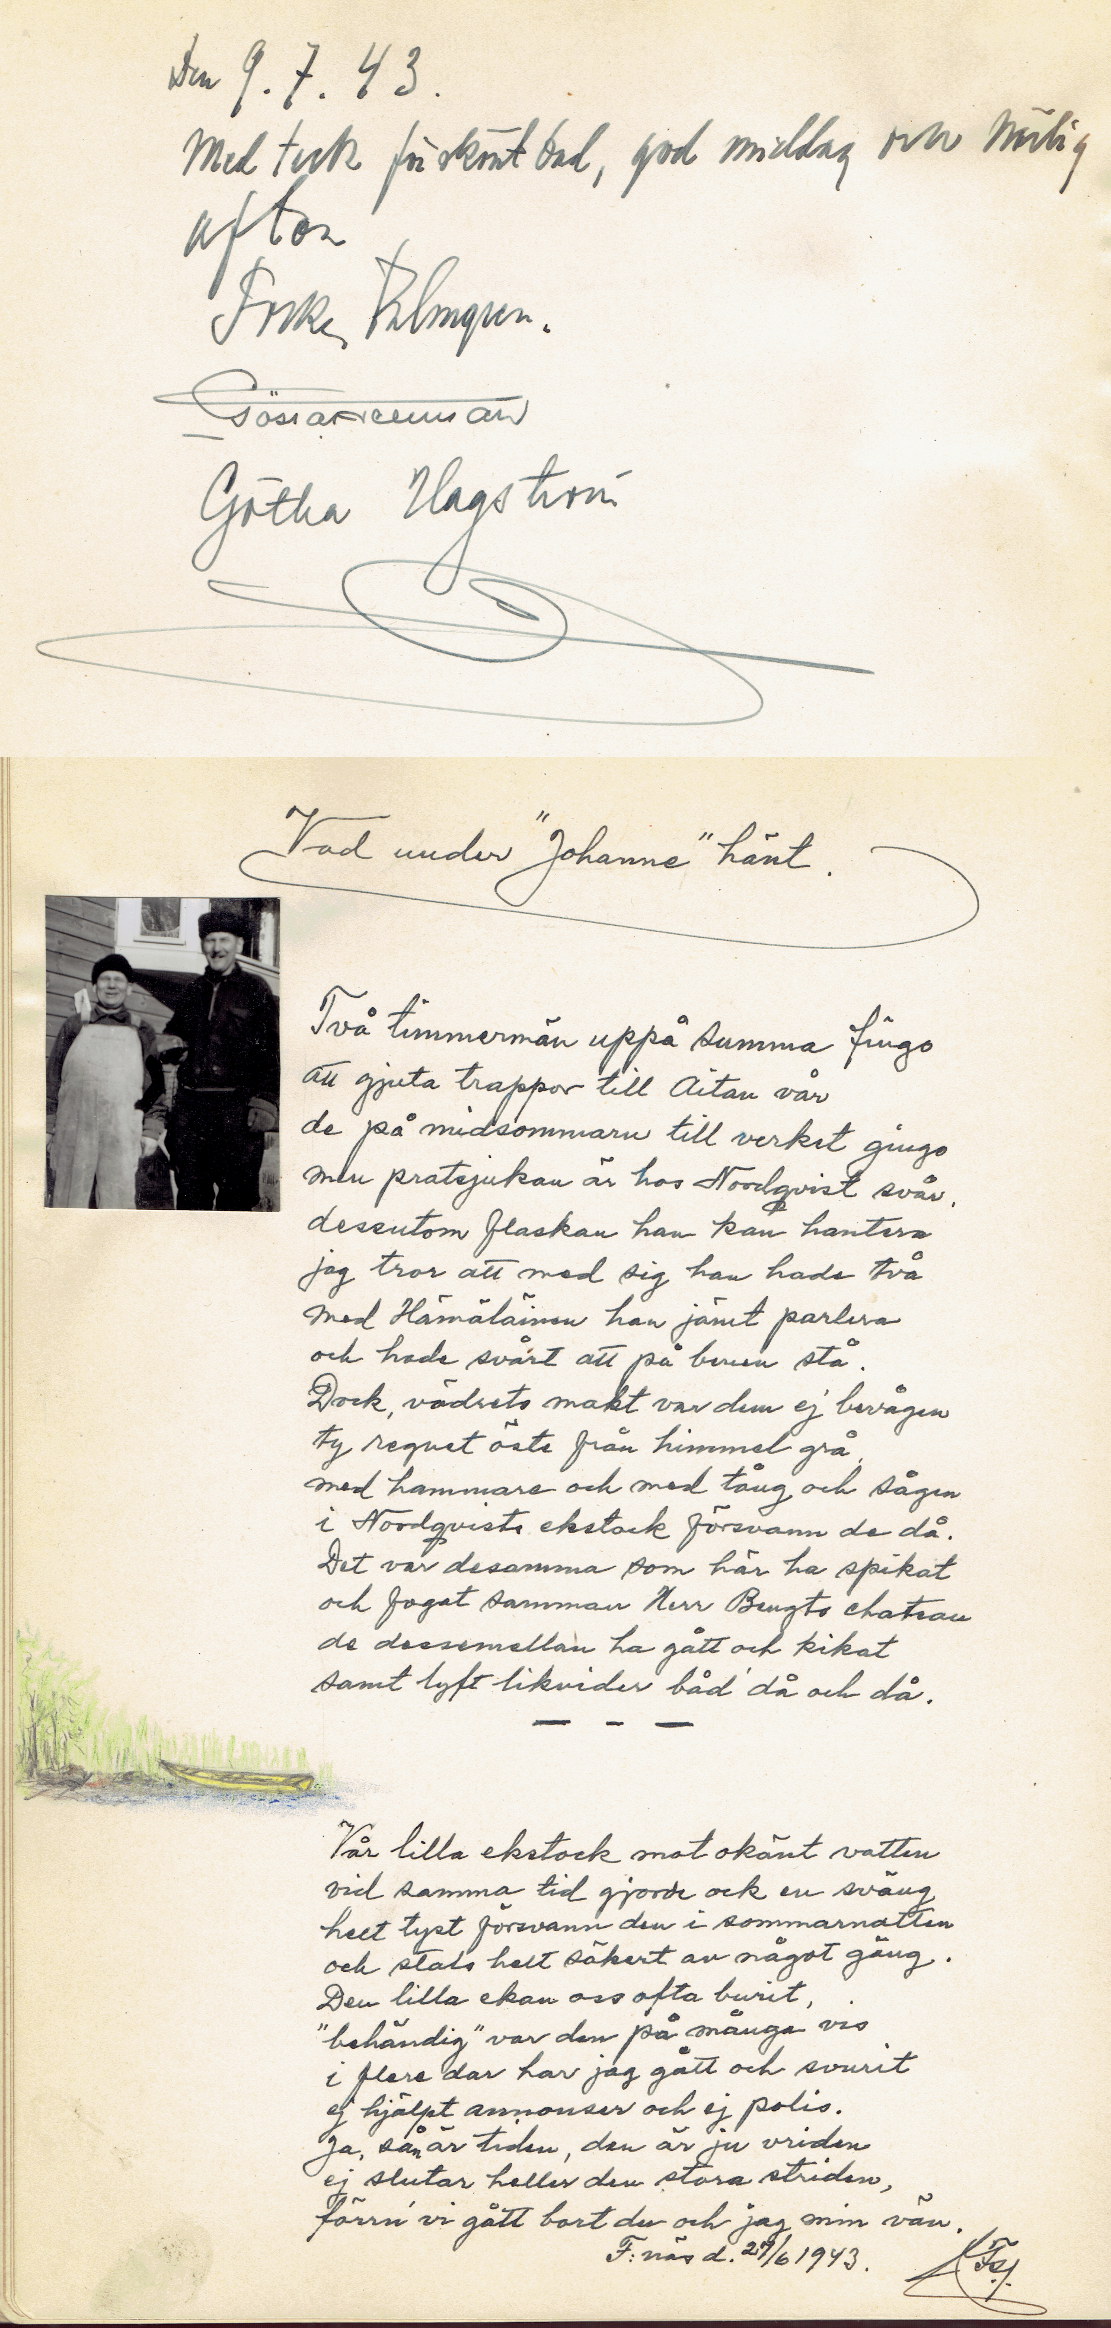 Den 9.7.43.
Med tack för skönt bad, god middag och härlig
afton
Palmgren.
Gösta
Götha Hagström
Vad under "Johanne" hänt.
Två timmermän uppå summa fingo
att gjuta trappor till Aitan vår
de på midsommarn till verket gingo
men pratsjukan är hos Nordqvist svår,
dessutom flaskan han kan hantera
jag tror att med sig han hade två
med Hämäläinen han jämt parlera
och hade svårt att på benen stå.
Dock, vädrets makt var dem ej bevågen
ty regnet öste från himmel grå,
med hammare och med tång och sågen
i Nordqvists ekstock försvann de då.
Det var desamma som här ha spikat
och fogat samman Herr Bengts chateau
de dessemellan ha gått och kikat
samt lyft likvider båd' då och då.
— - —
Vår lilla ekstock mot okänt vatten
vid samma tid gjorde ock en sväng
helt tyst försvann den i sommarnatten
och stals helt säkert av något gäng.
Den lilla ekan oss ofta burit,
"behändig" var den på många vis
i flere dar har jag gått och svurit
ej hjälpt annonser och ej polis.
Ja, sån är tiden, den är ju vriden
ej slutar heller den stora striden,
förrn' vi gått bort du och jag min vän.
F:näs d. 29/6 1943.